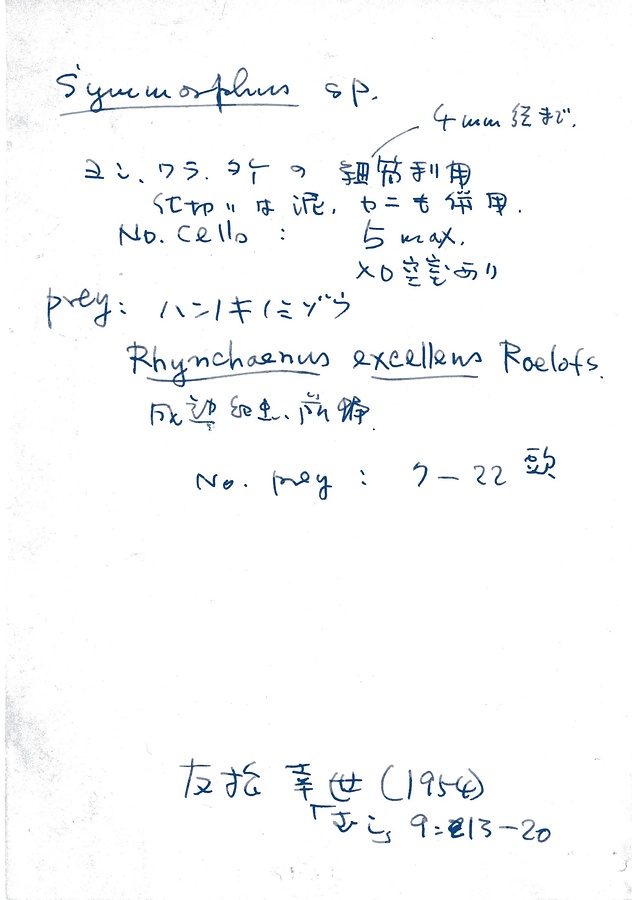 Symmorphus sp.
4mm 径まで.
ヨシ、ワラ、タケの細筒利用
仕切りは泥、ヤニも併用.
No. cells : 5 max.
×0 空室あり
prey: ハンノキノミゾウ
Rhynchaenus excellens Roelofs.
成幼
No. prey : 7-22 頭
幸世 (1954)
9: 13-20